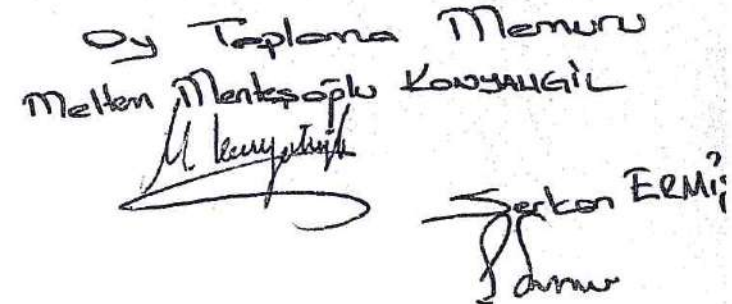 Oy Toplama Memuru
Meltem Menteşoğlu KONYALIGİL
Serkan ERMİŞ